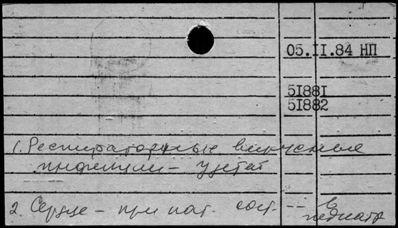 05.II.84 НП
5I881
5I882
1. Респираторные вирусные
инфекции -
2. Сердце - при пат. сост. -- в